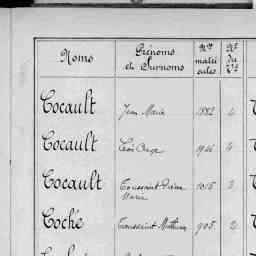 Noms Prénoms et Surnoms Nos matricules No du Con
Cocault Jean Marie 1882 4
Cocault Léon Ange 1946 4
Cocault Toussaint Pierre Marie 1015 3
Coché Toussaint Mathurin 905 2